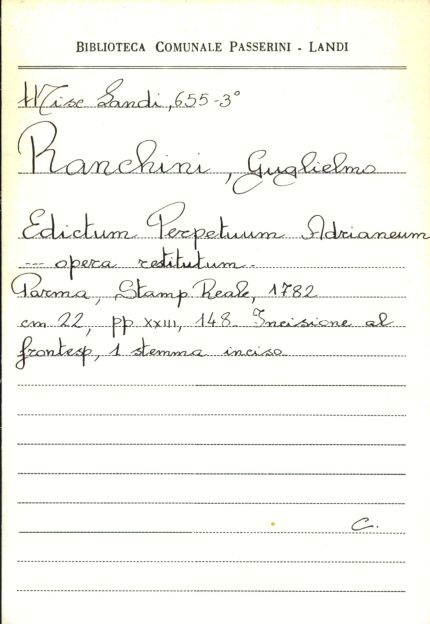 BIBLIOTECA COMUNALE PASSERINI - LANDI
Misc Landi, 655-3°
Ranchini, Guglielmo
Edictum Perpetuum Adrianeum
--- opera restitutum.
Parma, Stamp. Reale, 1782
cm 22, pp XXIII, 148. Incisione al
frontesp, 1 stemma inciso
C.